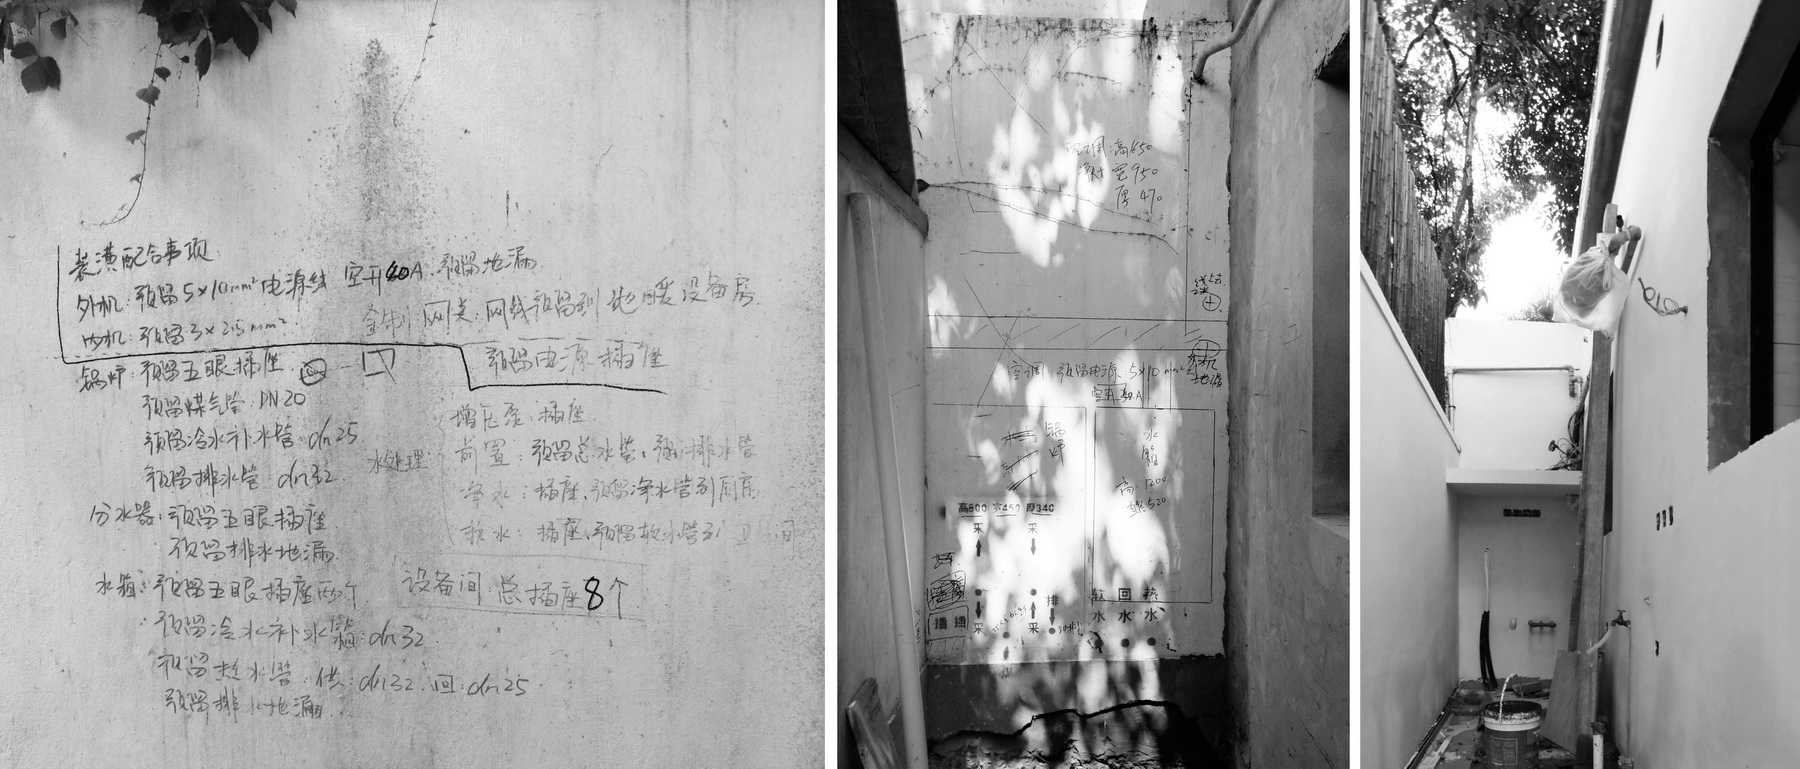 装潢配合事项
外机：预留5×10mm²电源线 空开40A．预留地漏
内机：预留3×2.5mm²
网关：网线预留到地暖设备房
预留电源插座
锅炉：预留五眼插座
预留煤气管：DN20
预留冷水补水管：dn25
预留排水管：dn32
分水器：预留五眼插座
预留排水地漏
水箱：预留五眼插座两个
预留冷水补水箱：dn32
预留热水管：供：dn32 回：dn25
预留排水地漏
水处理：
增压泵：插座
前置：预留总水管、预留排水管
净水：插座、预留净水管到厨房
软水：插座、预留软水管到卫 间
设备间：总插座8个
空调：高850
宽950
厚470
空调 预留电源 5×10mm²
空开 40A
锅炉
水箱
高：1200
直径520
高800 宽450 厚340
采 采
排
插 插
采 采
软 回 热
水 水 水